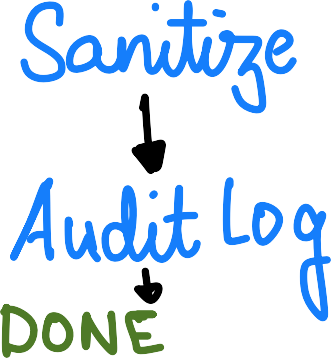 Sanitize
Audit Log
DONE